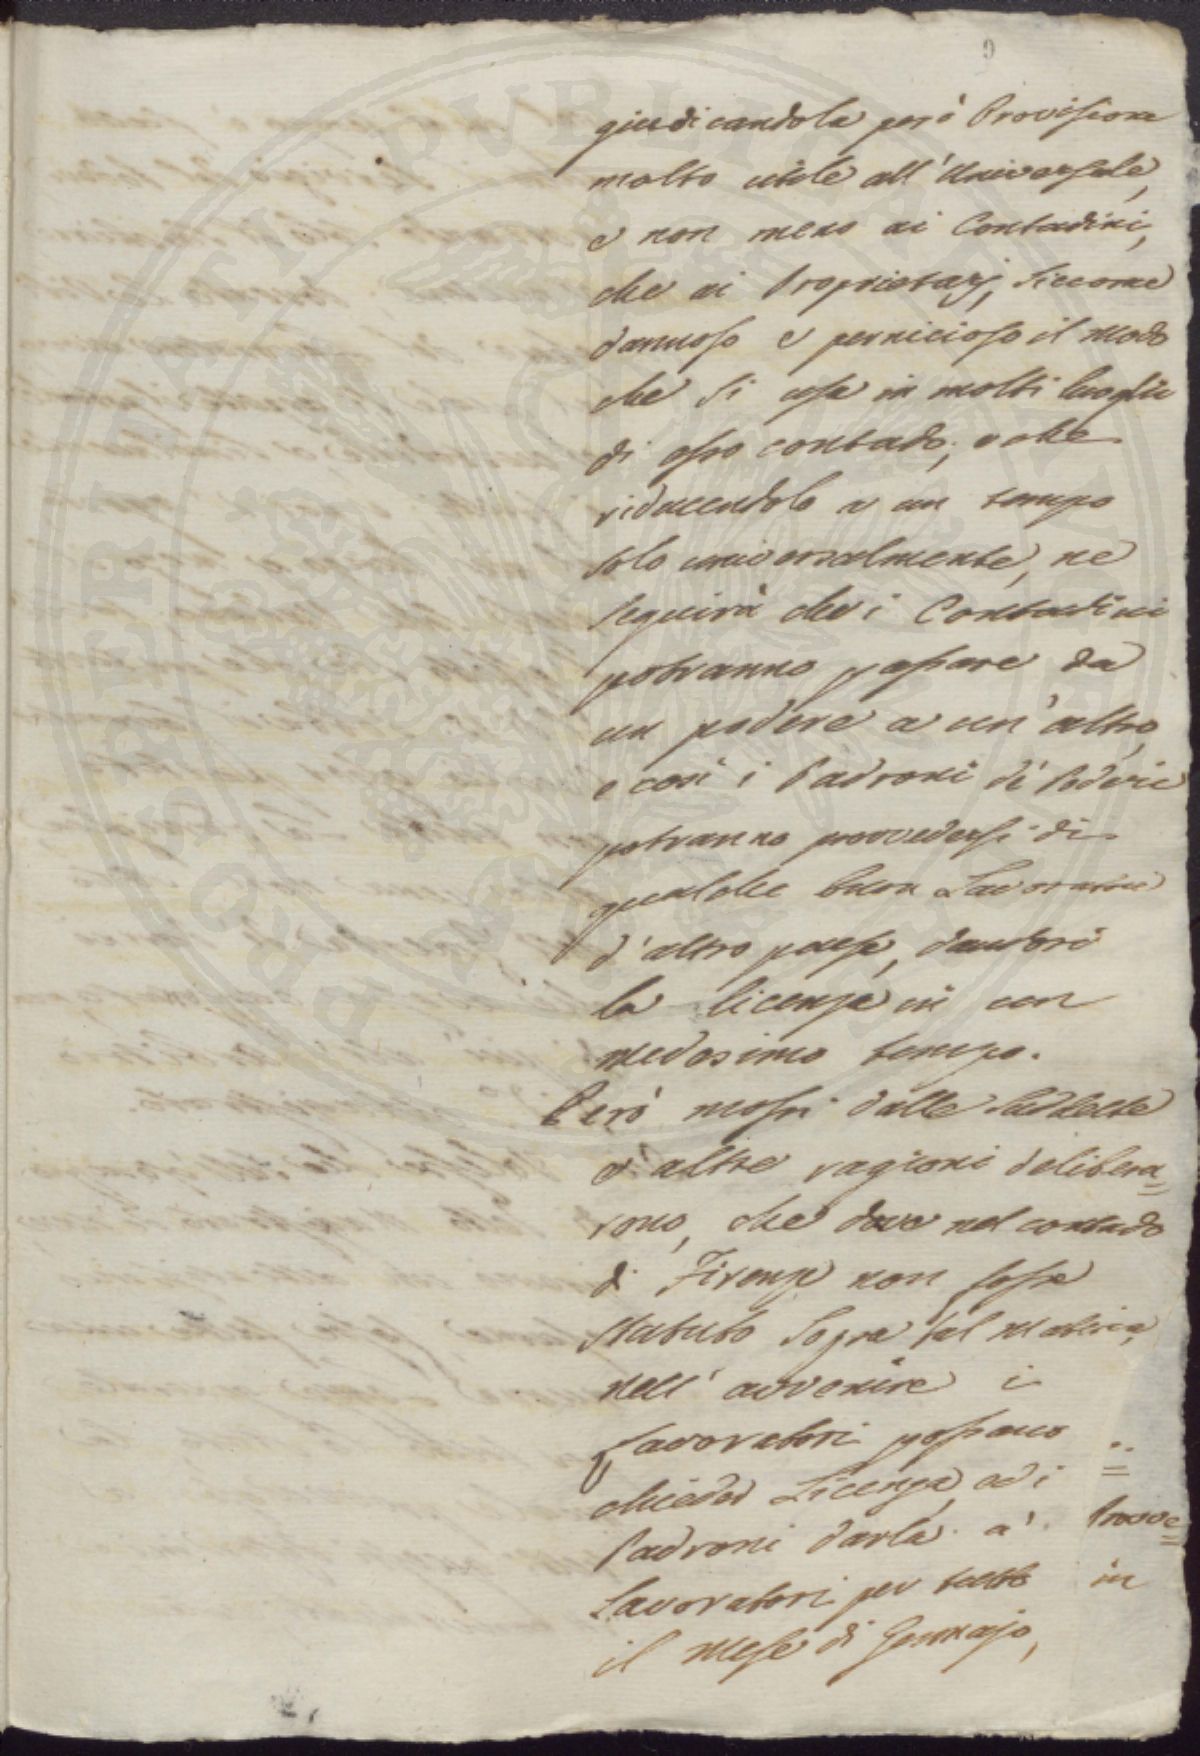 9
giudicandola però Provisione
molto utile all'Universale,
e non meno ai Contadini,
che ai Proprietarj, siccome
dannoso e pernicioso il modo
che si usa in molti luoghi
di esso contado, e che
riducendolo a un tempo
solo universalmente, ne
seguirà che i Contadini
potranno passare da
un podere a un'altro,
e così i Padroni de' Poderi
potranno provvedersi di
qualche buon Lavoratore
d'altro paese, dandosi
la licenza in un
medesimo tempo.
Però mossi dalle suddette
e altre ragioni delibera=
rono, che dove nel contado
di Firenze non fosse
statuto sopra tal materia,
nell'avvenire i
Lavoratori possano
chieder Licenza, ed i
Padroni darla a'
Lavoratori per tutto
il mese di Gennajo,
Provve=
in
PROSPERITATI PVBLICAE